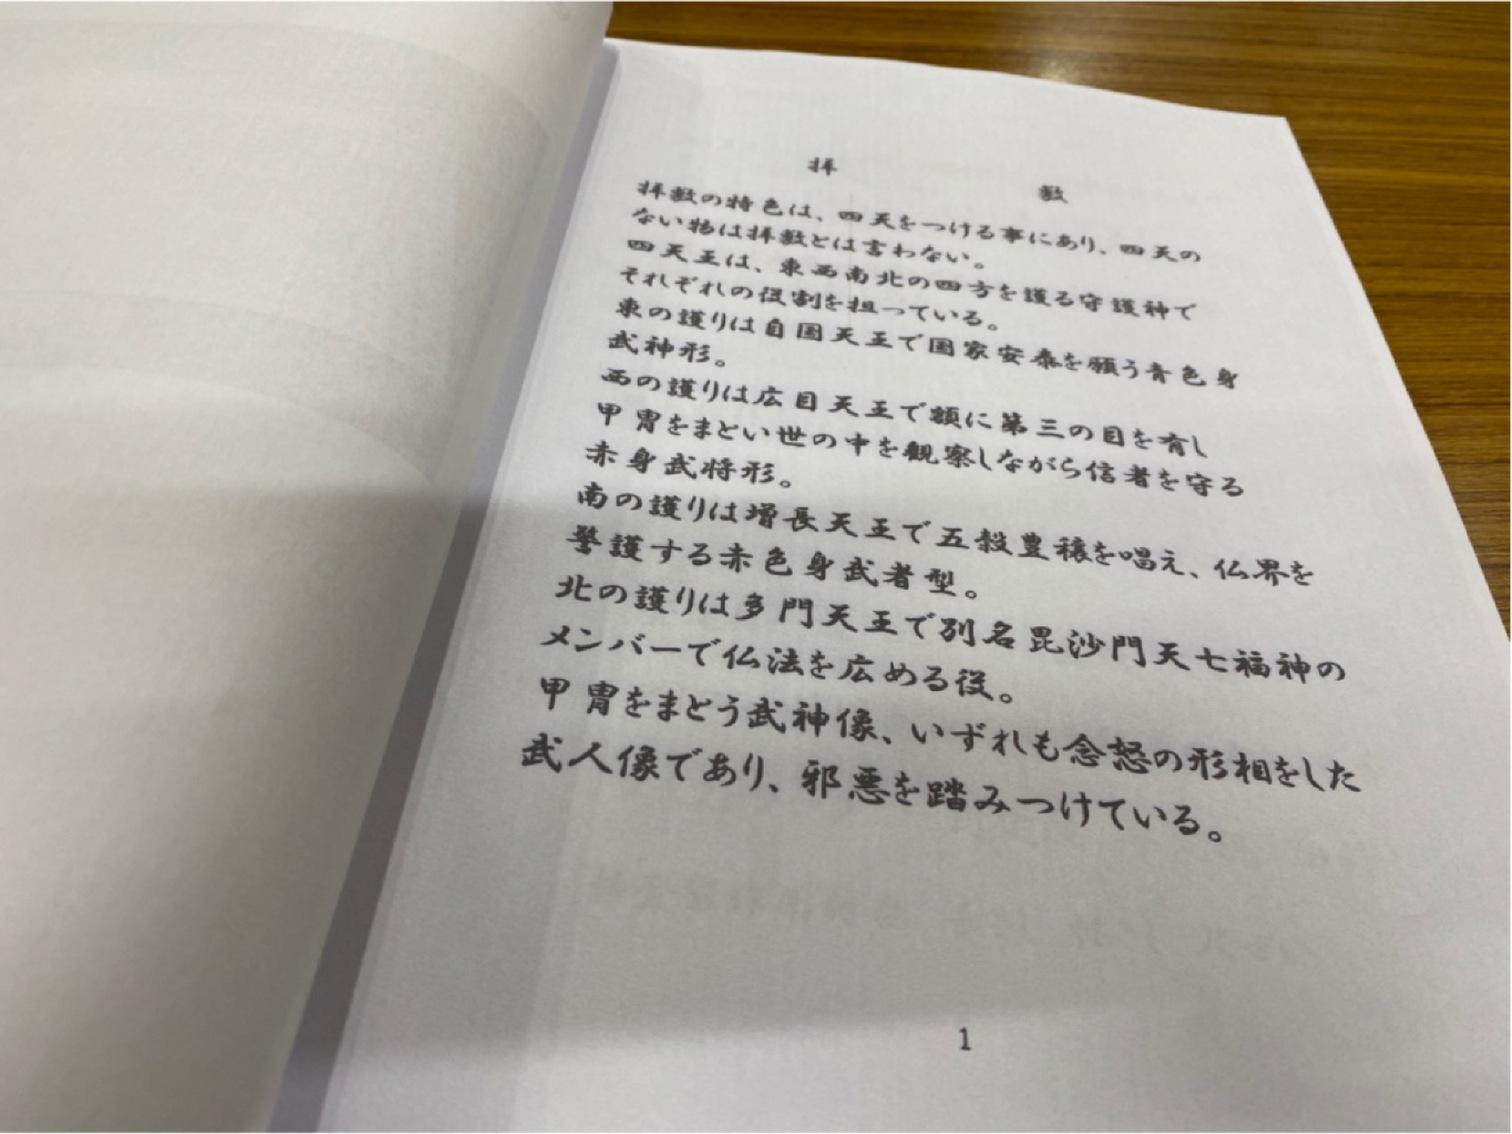 拝　数
拝数の特色は、四天をつける事にあり、四天の
ない物は拝数とは言わない。
四天王は、東西南北の四方を護る守護神で
それぞれの役割を担っている。
東の護りは自国天王で国家安泰を願う青色身
武神形。
西の護りは広目天王で額に第三の目を有し
甲冑をまどい世の中を観察しながら信者を守る
赤身武将形。
南の護りは増長天王で五穀豊穣を唱え、仏界を
警護する赤色身武者型。
北の護りは多門天王で別名毘沙門天七福神の
メンバーで仏法を広める役。
甲冑をまどう武神像、いずれも念怒の形相をした
武人像であり、邪悪を踏みつけている。
1